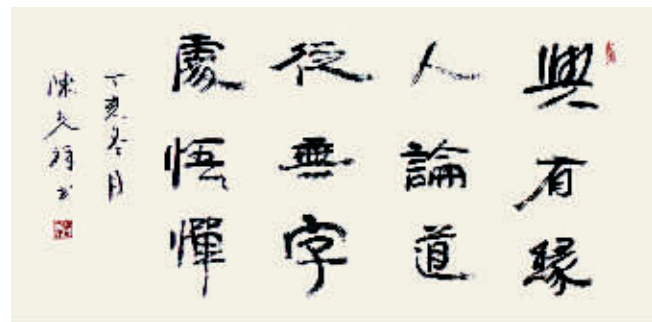 與有緣
人論道
從無字
處悟禪
丁亥冬月
陳祥书